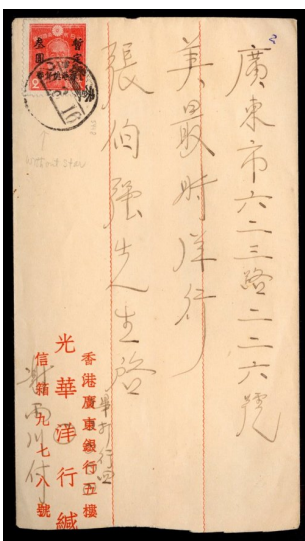 廣東市六二三路二二六號
美最時洋行
張伯強先生啓
香港廣東銀行五樓
光華洋行緘
信箱九七八號
謝雨川付
暫定
叁圓
2